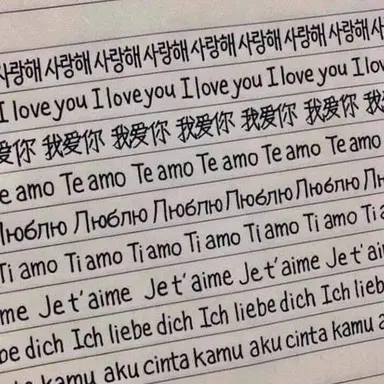 사랑해 사랑해 사랑해 사랑해 사랑해 사랑해 사랑해 사랑해
I love you I love you I love you I love you I love
爱你 我爱你 我爱你 我爱你 我爱你 我爱你 我爱
Te amo Te amo Te amo Te amo Te amo Te amo
Люблю Люблю Люблю Люблю Люблю
Ti amo Ti amo Ti amo Ti amo Ti amo Ti amo Ti
Je t'aime Je t'aime Je t'aime Je t'aime
dich Ich liebe dich Ich liebe dich Ich liebe
kamu aku cinta kamu aku cinta kamu